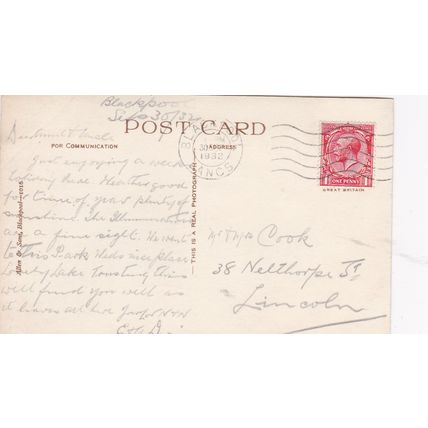 Blackpool
Sep 30/32
POST CARD
FOR COMMUNICATION
ADDRESS
BLACKPOOL
30
1932
LANCS
ONE PENNY
GREAT BRITAIN
Dear Aunt & Uncle
Just enjoying a week
holiday here. Weather good
for time of year plenty of
sunshine. The Illuminations
are a fine sight. We went
to this Park. It is nice place
lovely lake. Trusting this
will find you well as
it leaves all here
Mr & Mrs Cook
38 Nelthorpe St
Lincoln
THIS IS A REAL PHOTOGRAPH
Allen & Sons, Blackpool—2015